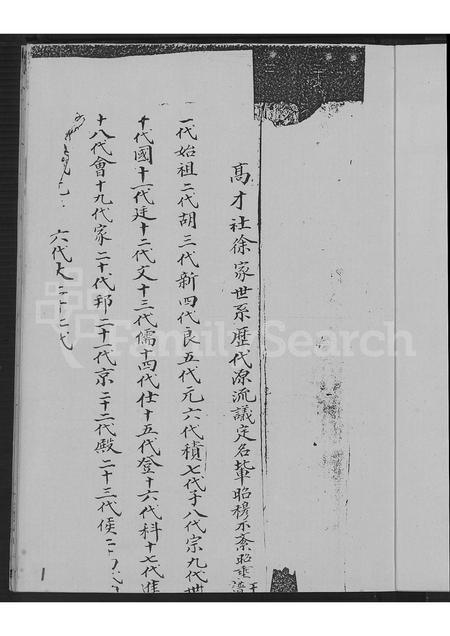 高才社徐家世系歷代源流議定名輩昭穆不紊昭垂譜
一代始祖二代胡三代新四代良五代元六代積七代子八代宗九代世
十代國十一代廷十二代文十三代儒十四代仕十五代登十六代科十七代進
十八代會十九代家二十代邦二十一代京二十二代殿二十三代侯二十
六代大二十二代
FamilySearch
1